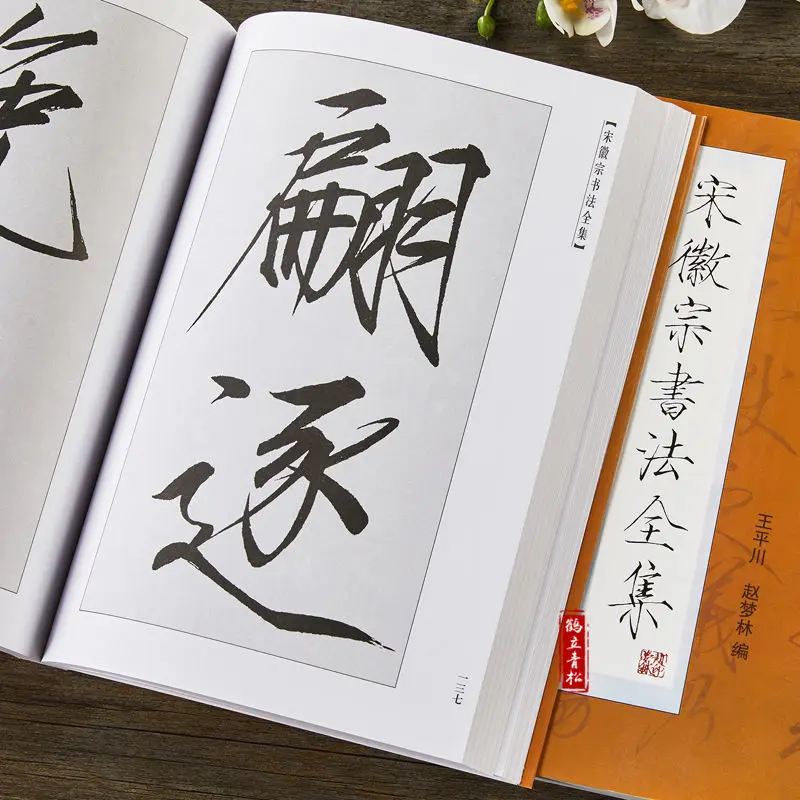 翩逐
【宋徽宗书法全集】
一三七
宋徽宗書法全集
王平川 赵梦林 编
鹤立青松